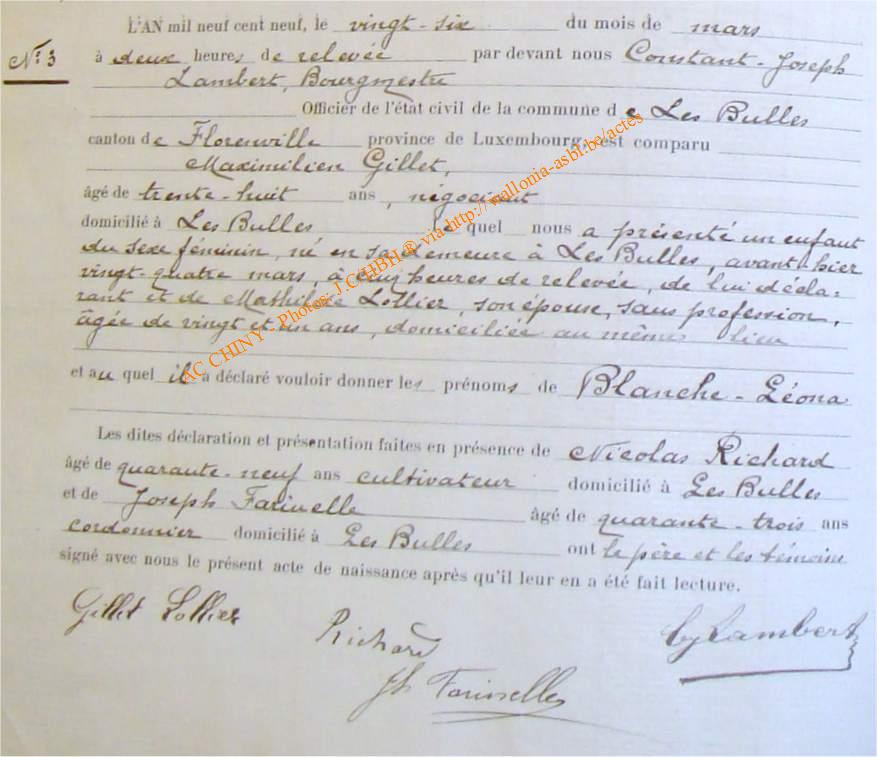 L'AN mil neuf cent neuf, le vingt-six du mois de mars
N° 3
à deux heures de relevée par devant nous Constant-Joseph
Lambert, Bourgmestre
Officier de l'état civil de la commune de Les Bulles
canton de Florenville province de Luxembourg, est comparu
Maximilien Gillet,
âgé de trente-huit ans, négociant
domicilié à Les Bulles le quel nous a présenté un enfant
du sexe féminin, né en sa demeure à Les Bulles, avant-hier
vingt-quatre mars, à heures de relevée, de lui décla-
rant et de Mathilde Lollier, son épouse, sans profession,
âgée de vingt et un ans, domiciliée au même lieu
et au quel il a déclaré vouloir donner les prénoms de Blanche-Léona
Les dites déclaration et présentation faites en présence de Nicolas Richard
âgé de quarante-neuf ans cultivateur domicilié à Les Bulles
et de Joseph Farinelle âgé de quarante-trois ans
cordonnier domicilié à Les Bulles ont le père et les témoins
signé avec nous le présent acte de naissance après qu'il leur en a été fait lecture.
Gillet Lollier
Richard
CJLambert
Jh Farinelle
AC CHINY - Photos J.C HBH ® via http://wallonia-asbl.be/actes